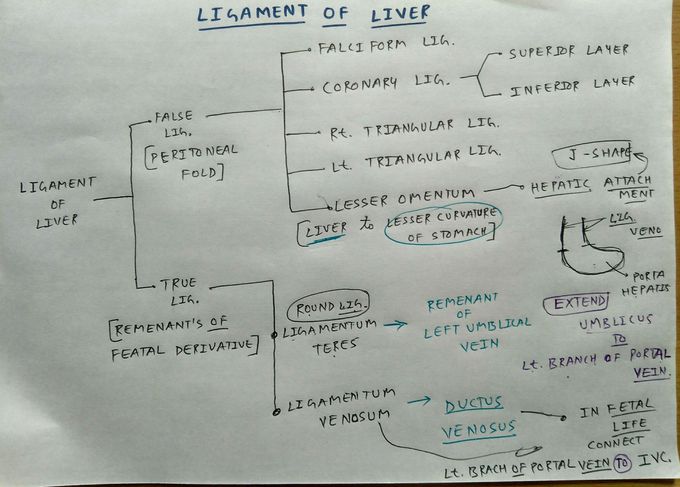 LIGAMENT OF LIVER
LIGAMENT
OF
LIVER
FALSE
LIG.
[PERITONEAL
FOLD]
FALCIFORM LIG.
CORONARY LIG.
SUPERIOR LAYER
INFERIOR LAYER
Rt. TRIANGULAR LIG.
Lt. TRIANGULAR LIG.
LESSER OMENTUM
HEPATIC ATTACH
MENT
J-SHAPE
[LIVER to LESSER CURVATURE
OF STOMACH]
LIG.
VENO
PORTA
HEPATIS
TRUE
LIG.
[REMENANT'S OF
FEATAL DERIVATIVE]
ROUND LIG.
LIGAMENTUM
TERES
REMENANT
OF
LEFT UMBLICAL
VEIN
EXTEND
UMBLICUS
TO
Lt. BRANCH OF PORTAL
VEIN.
LIGAMENTUM
VENOSUM
DUCTUS
VENOSUS
IN FETAL
LIFE
CONNECT
Lt. BRACH OF PORTAL VEIN TO IVC.